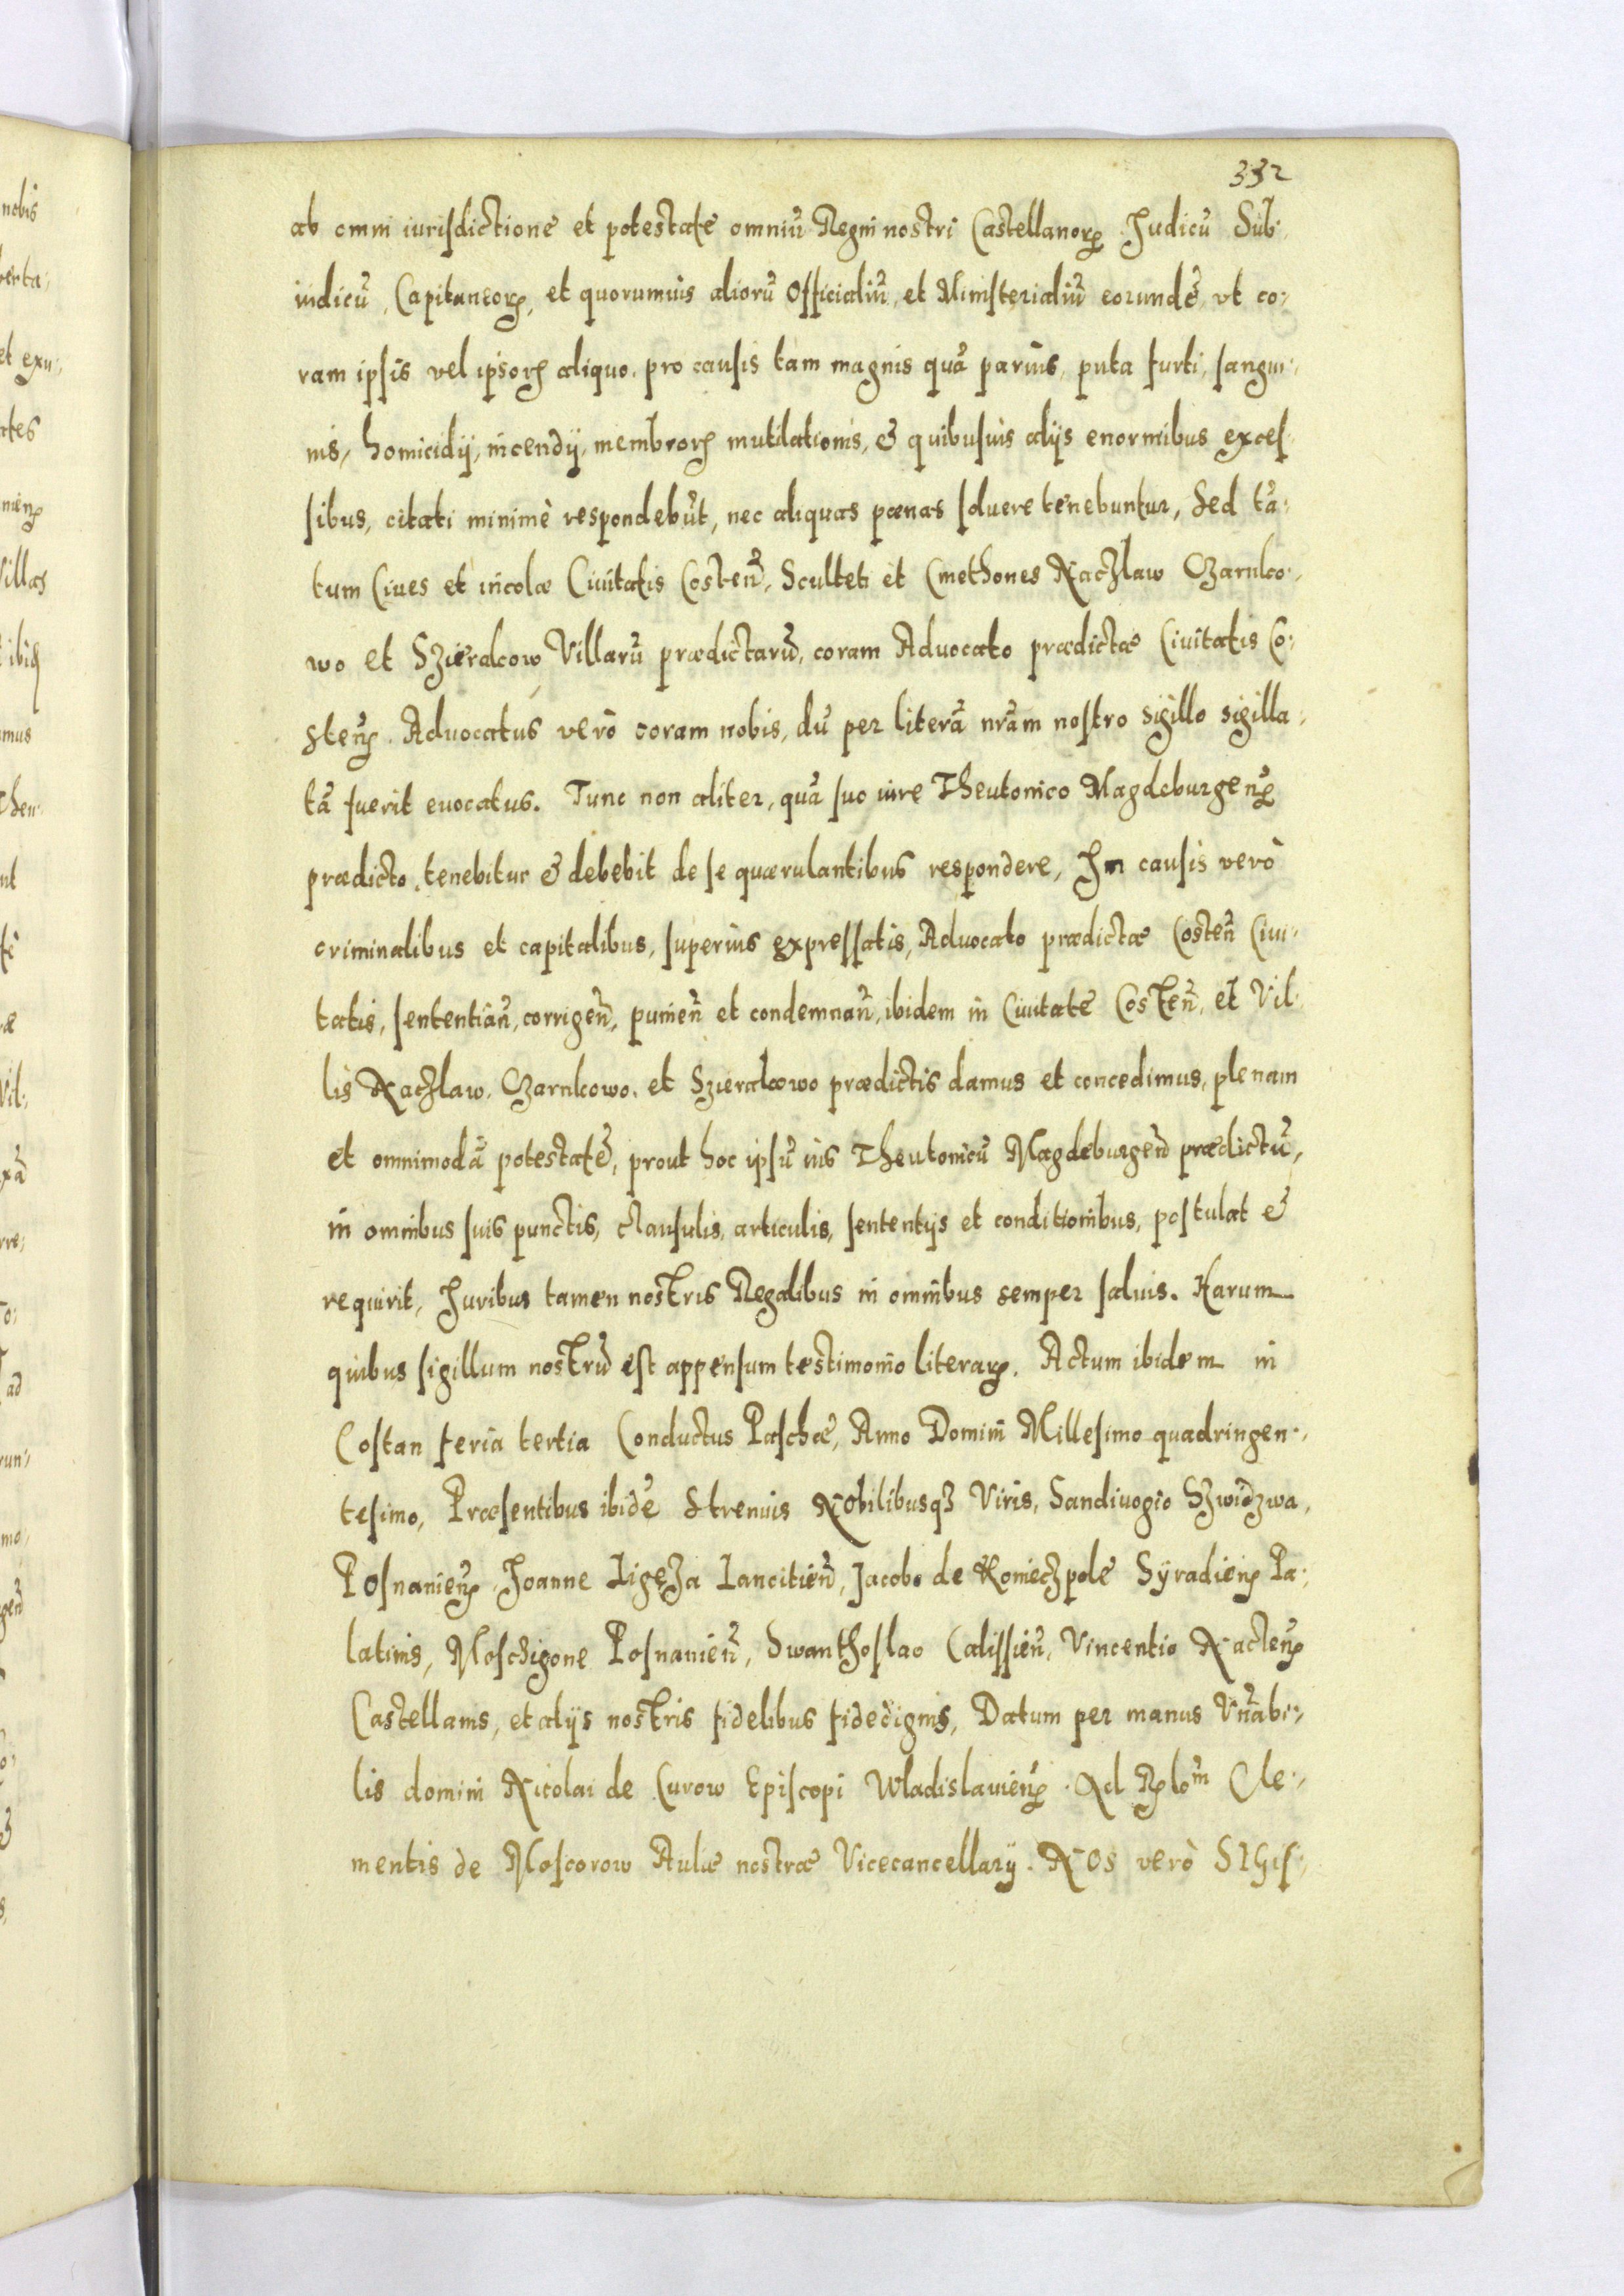 332
ab omni iurisdictione et potestate omniũ Regni nostri Castellanorꝝ Judicũ Sub:
iudicũ, Capitaneorꝝ, et quorumuis aliorũ Officialiũ, et Ministerialiũ eorundẽ, vt co:
ram ipsis vel ipsorꝝ aliquo, pro causis tam magnis quã paruis, puta furti, sangui:
nis, homicidij, incendij, membrorꝝ mutilationis, & quibusuis alijs enormibus exces:
sibus, citati minimè respondebũt, nec aliquas pœnas soluere tenebuntur, Sed tã:
tum Ciues et incolæ Ciuitatis Costeñ, Sculteti et Cmethones Naczlaw Czarnko:
wo et Szierakow Villarũ prædictarũ, coram Aduocato prædictæ Ciuitatis Co:
steñ. Aduocatus verò coram nobis, dũ per literã nr̃am nostro sigillo sigilla:
tã fuerit euocatus. Tunc non aliter, quã suo iure Theutonico Magdeburgeñ
prædicto, tenebitur & debebit de se quærulantibus respondere, In causis verò
criminalibus et capitalibus, superius expressatis, Aduocato prædictæ Costeñ Ciui:
tatis, sententiañ, corrigeñ, punieñ et condemnañ, ibidem in Ciuitate Costeñ, et Vil:
lis Naczlaw, Czarnkowo, et Szierakowo prædictis damus et concedimus, plenam
et omnimodã potestatẽ, prout hoc ipsũ ius Theutonicũ Magdeburgeñ prædictũ,
in omnibus suis punctis, clausulis, articulis, sententijs et conditionibus, postulat &
requirit, Juribus tamen nostris Regalibus in omnibus semper saluis. Harum
quibus sigillum nostrũ est appensum testimonio literarꝝ. Actum ibidem in
Costan feria tertia Conductus Paschæ, Anno Domini Millesimo quadringen:
tesimo, Præsentibus ibidẽ Strenuis Nobilibusqꝫ Viris, Sandiuogio Szwidzwa,
Posnanieñ, Joanne Ligęza Lancitieñ, Jacobo de Konieczpole Syradieñ Pa:
latinis, Moschigone Posnanieñ, Swanthoslao Calissieñ, Vincentio Nacteñ
Castellanis, et alijs nostris fidelibus fidedignis, Datum per manus Vñabi:
lis domini Nicolai de Curow Episcopi Wladislauieñ. Ad Rꝑloᵐ Cle:
mentis de Moscorow Aulæ nostræ Vicecancellarij. Nos verò SIGis: